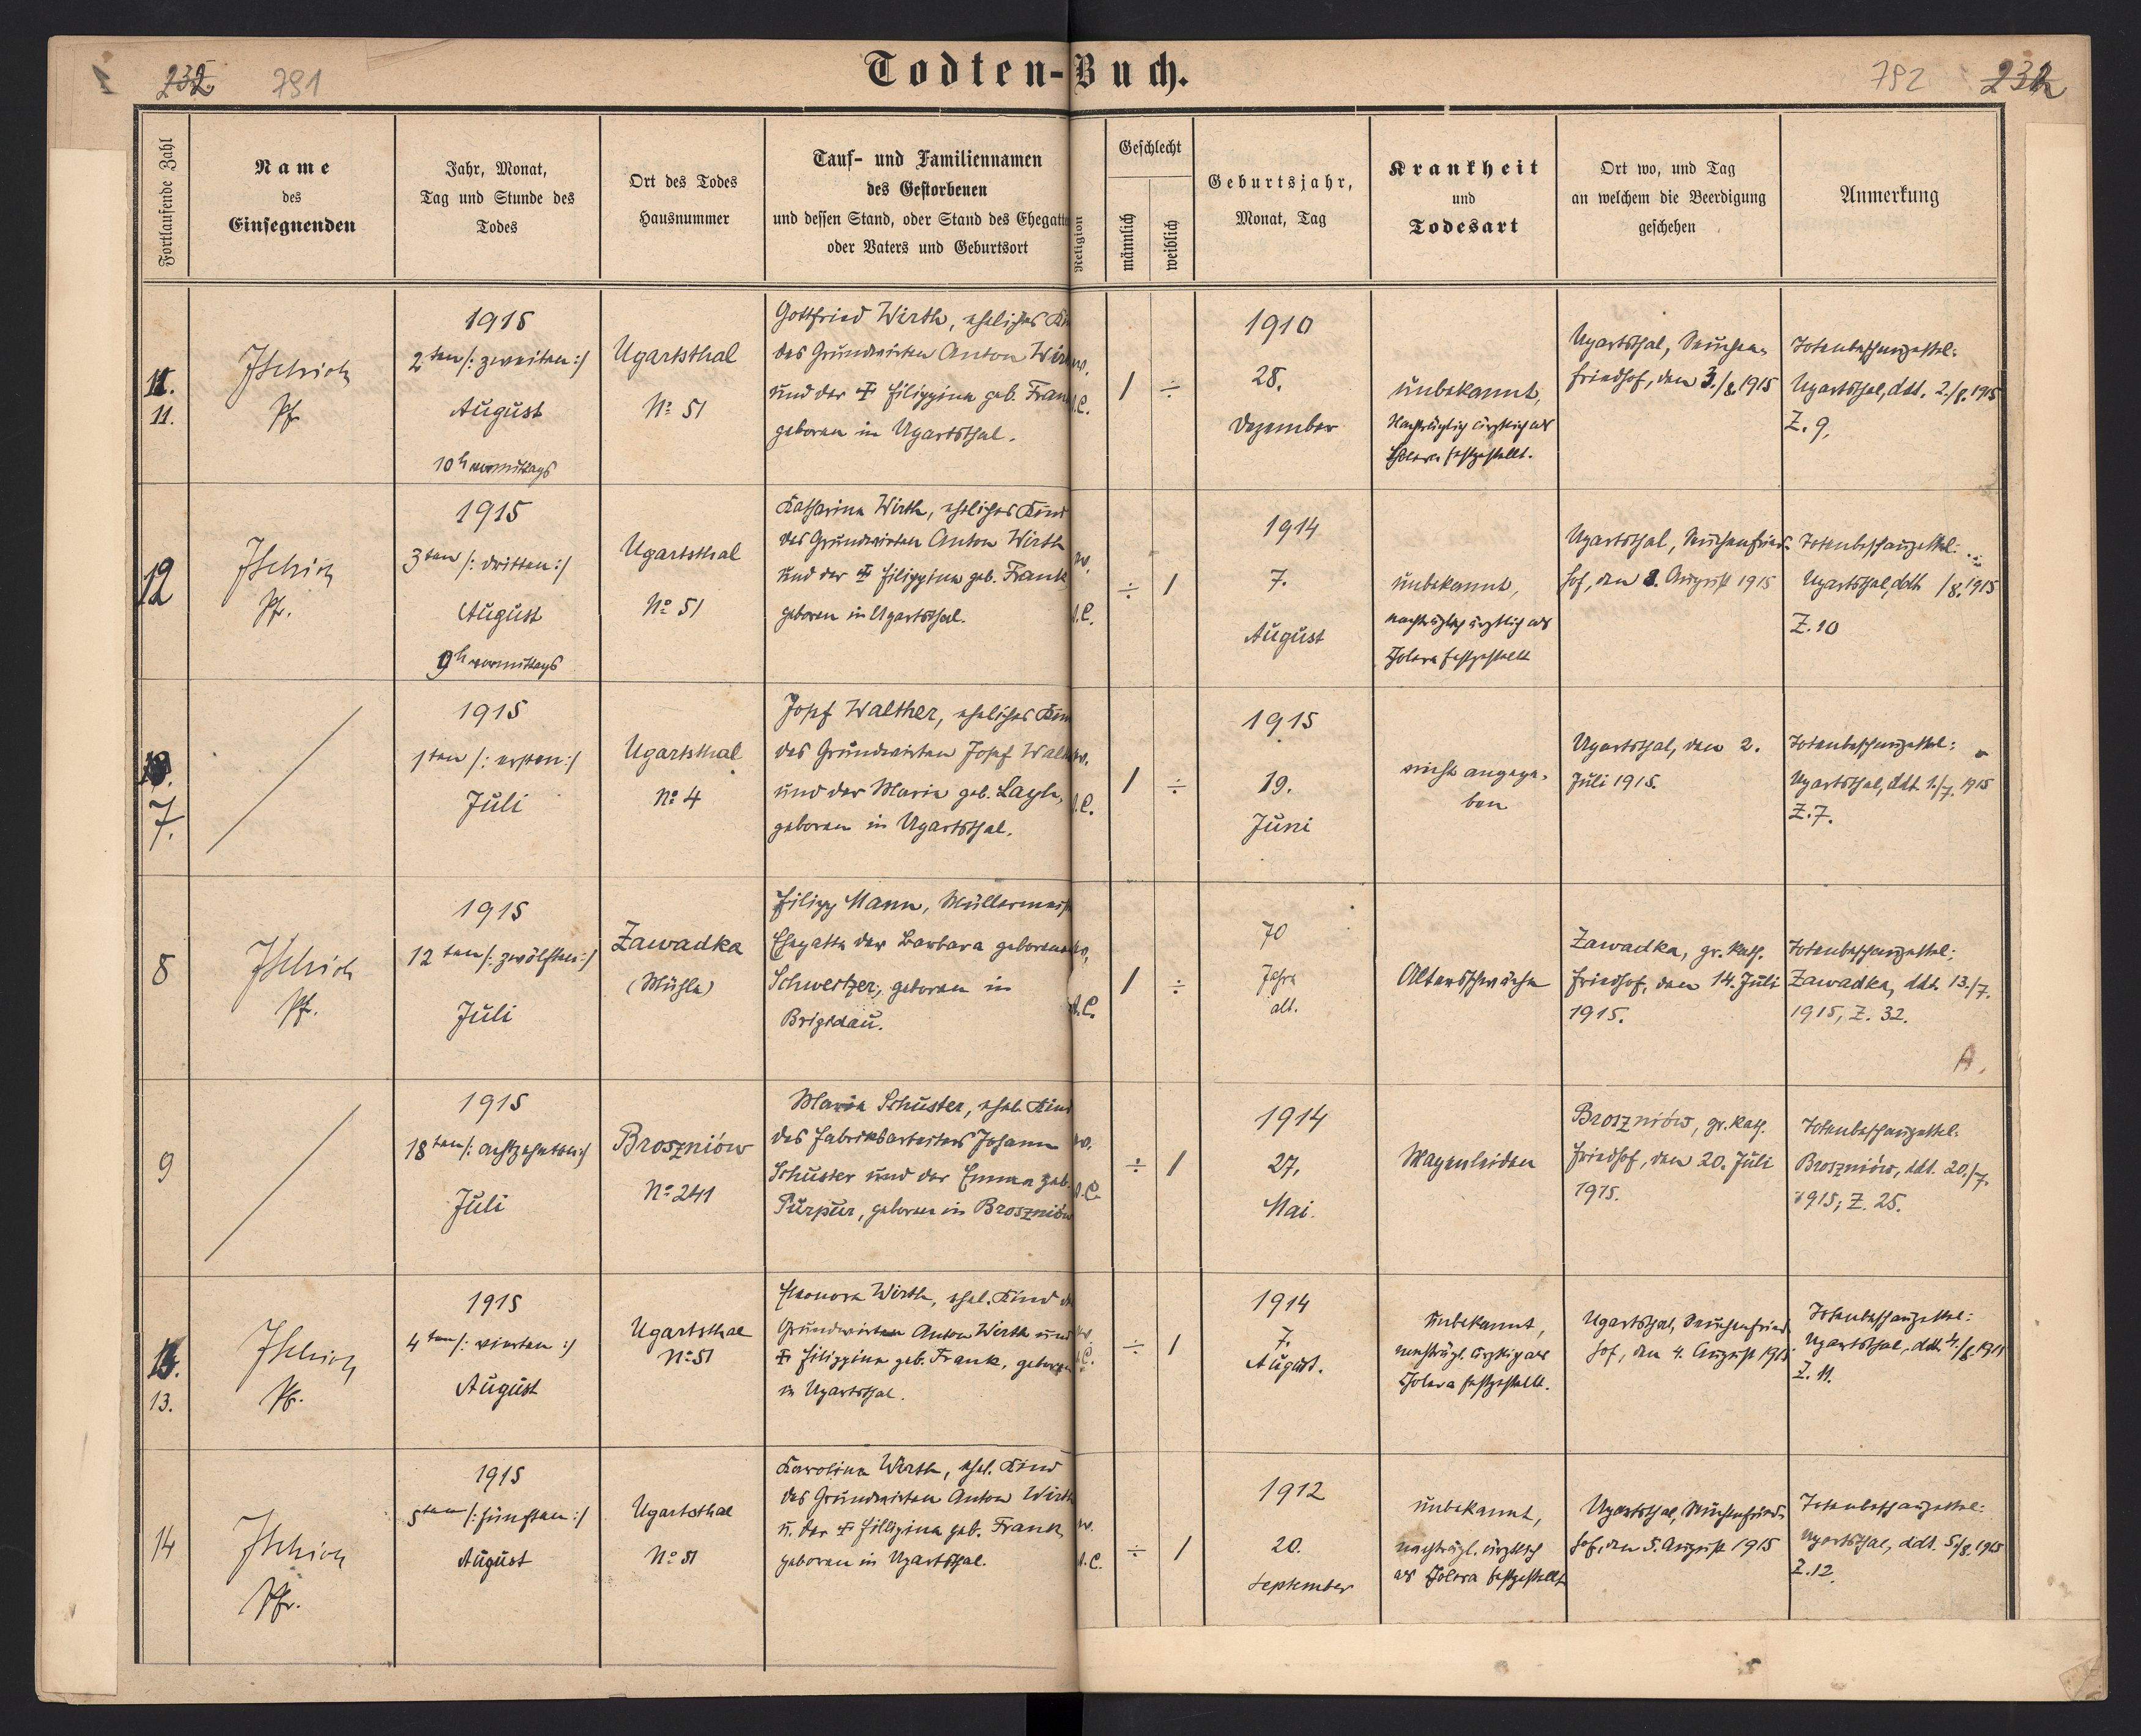 232. 791
Todten-Buch.
792 232
Fortlaufende Zahl
Name
des
Einsegnenden
Jahr, Monat,
Tag und Stunde des
Todes
Ort des Todes
Hausnummer
Tauf- und Familiennamen
des Gestorbenen
und dessen Stand, oder Stand des Ehegatten
oder Vaters und Geburtsort
Religion
Geschlecht
männlich
weiblich
Geburtsjahr,
Monat, Tag
Krankheit
und
Todesart
Ort wo, und Tag
an welchem die Beerdigung
geschehen
Anmerkung
11.
11.
Pfr.
1915
2ten /: zweiten :/
August
10h vormittags
Ugartsthal
No 51
Gottfried Wirth, eheliches Kin
des Grundwirten Anton Wir
und der ✝ Filippina geb. Fran
geboren in Ugartsthal.
1 ÷
1910
28.
Dezember
unbekannt,
Nachträglich ärztlich als
Cholera festgestellt.
Ugartsthal, Seuchen-
friedhof, den 3./8. 1915
Totenbeschauzettel:
Ugartsthal, ddt. 2./8. 1915
Z. 9.
12
Pfr.
1915
3ten /: dritten :/
August
9h vormittags
Ugartsthal
No 51
Katharina Wirth, eheliches Kind
des Grundwirten Anton Wirth
und der ✝ Filippina geb. Frank
geboren in Ugartsthal.
÷ 1
1914
7.
August
unbekannt,
nachträglich ärztlich als
Colera festgestellt
Ugartsthal, Seuchenfried-
hof, den 3. August 1915
Totenbeschauzettel:
Ugartsthal, ddt. /8. 1915
Z. 10
7.
1915
1ten /: ersten :/
Juli
Ugartsthal
No 4
Josef Walther, eheliches Kin
des Grundwirten Josef Walt
und der Maria geb. Layh,
geboren in Ugartsthal.
1 ÷
1915
19.
Juni
nicht angege-
ben
Ugartsthal, den 2.
Juli 1915.
Totenbeschauzettel:
Ugartsthal, ddt. 1./7. 1915
Z. 7.
8
Pfr.
1915
12ten /: zwölften :/
Juli
Zawadka
(Mühle)
Filipp Mann, Müllermeist
Ehegatte der Barbara geborene
Schweitzer, geboren in
Brigidau.
A.C.
1 ÷
70
Jahre
alt.
Altersschwäche
Zawadka, gr. kath.
Friedhof, den 14. Juli
1915.
Totenbeschauzettel:
Zawadka, ddt. 13./7.
1915, Z. 32.
A.
9
1915
18ten /: achtzehnten :/
Juli
Broszniów
No 241
Maria Schuster, ehel. Kind
des Fabriksarbeiters Johann
Schuster und der Emma geb.
Purpur, geboren in Broszniów
A.C.
÷ 1
1914
27.
Mai.
Magenleiden
Broszniów, gr. kath.
Friedhof, den 20. Juli
1915.
Totenbeschauzettel:
Broszniów, ddt. 20./7.
1915, Z. 25.
13.
Pfr.
1915
4ten /: vierten :/
August
Ugartsthal
No 51
Eleonora Wirth, ehel. Kind d
Grundwirten Anton Wirth und
✝ Filippina geb. Frank, geboren
in Ugartsthal.
÷ 1
1914
7.
August.
Unbekannt,
nachträgl. ärztlich als
Colera festgestellt.
Ugartsthal, Seuchenfried-
hof, den 4. August 1915
Totenbeschauzettel:
Ugartsthal, ddt. 4./8. 1915
Z. 11.
14
Pfr.
1915
5ten /: fünften :/
August
Ugartsthal
No 51
Karolina Wirth, ehel. Kind
des Grundwirten Anton Wirth
u. der ✝ Fillipina geb. Frank
geboren in Ugartsthal.
A.C.
÷ 1
1912
20.
September
unbekannt,
nachträgl. ärztlich
als Colera festgestellt
Ugartsthal, Seuchenfried-
hof, den 5. August 1915
Totenbeschauzettel:
Ugartsthal, ddt. 5./8. 1915
Z. 12.